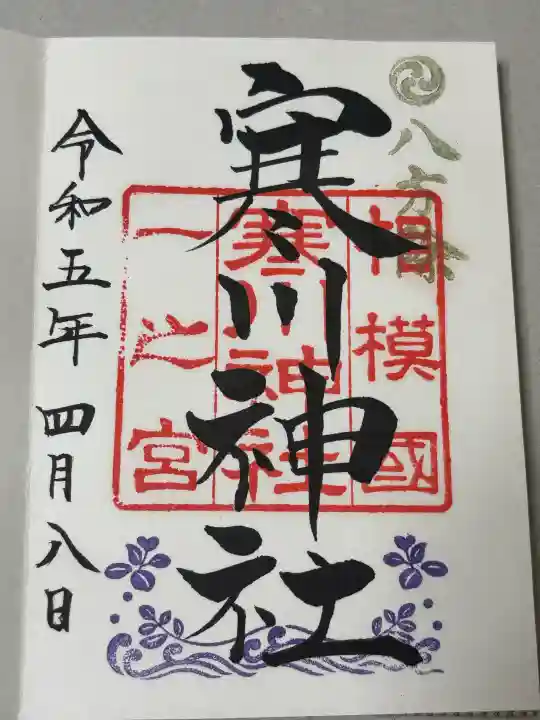 八方除
相模國
寒川神社
一之宮
寒川神社
令和五年 四月八日